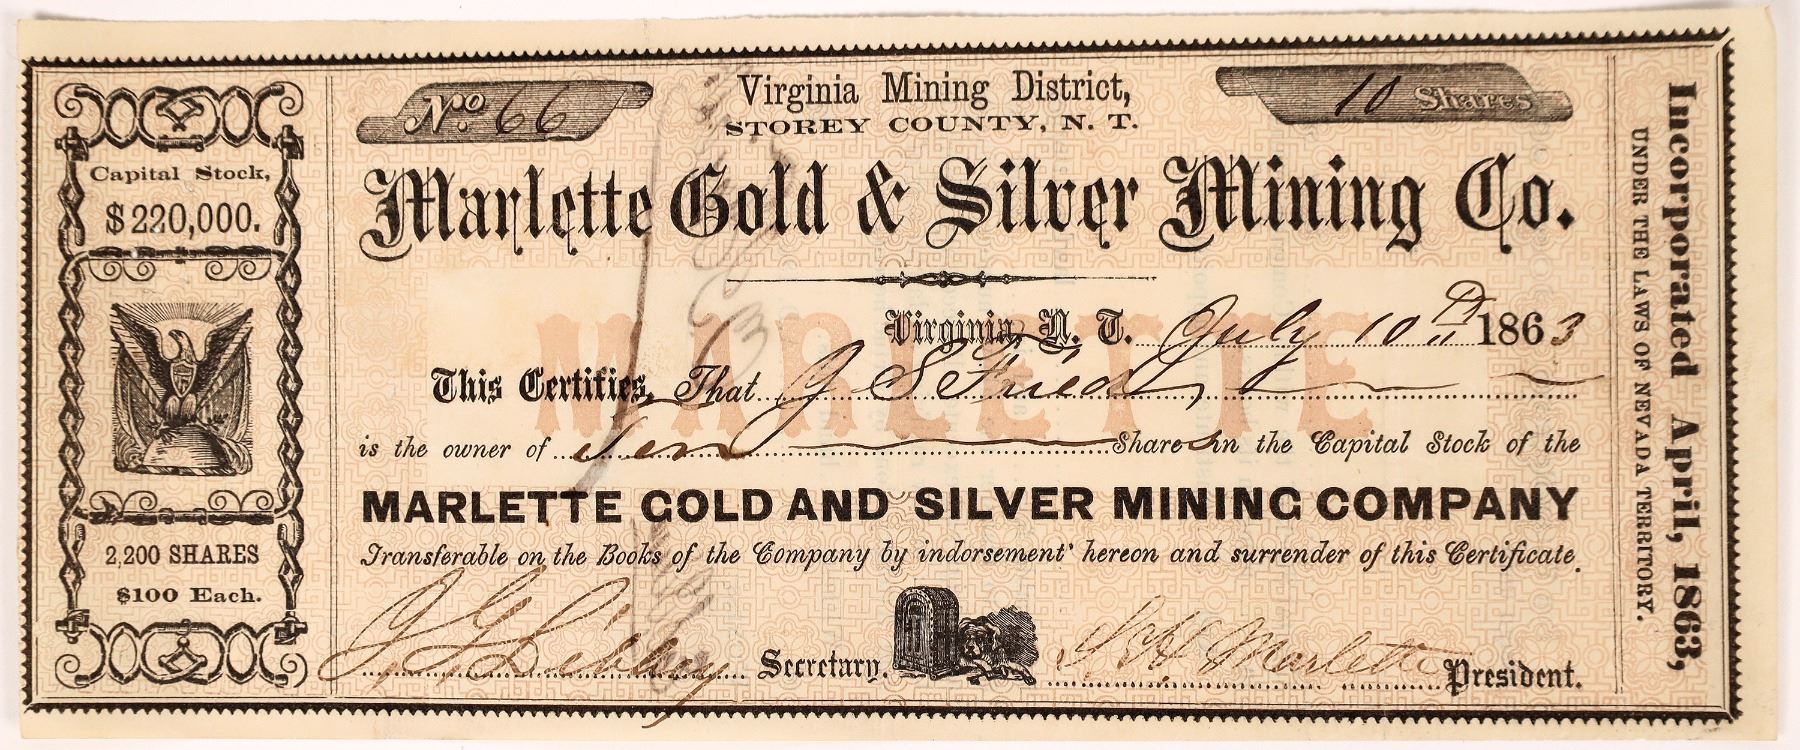 No. 66
Virginia Mining District,
STOREY COUNTY, N. T.
10 Shares
Marlette Gold & Silver Mining Co.
Capital Stock,
$220,000.
2,200 SHARES
$100 Each.
MARLETTE
Virginia, N. T. July 10th 1863
This Certifies, That J S Fried
is the owner of Ten Shares in the Capital Stock of the
MARLETTE GOLD AND SILVER MINING COMPANY
Transferable on the Books of the Company by indorsement hereon and surrender of this Certificate.
J. G. Libbey Secretary.
S H Marlette President.
Incorporated April, 1863,
UNDER THE LAWS OF NEVADA TERRITORY.